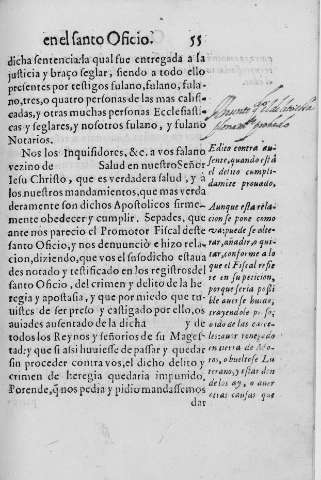 en el santo Oficio. 55
dicha sentencia: la qual fue entregada a la
justicia y braço seglar, siendo a todo ello
presentes por testigos fulano, fulano, fula-
no, tres, o quatro personas de las mas calific-
cadas, y otras muchas personas Ecclesiasti-
cas y seglares, y nosotros fulano, y fulano
Notarios.
Nos los Inquisidores, &c. a vos fulano
vezino de Salud en nuestro Señor
Iesu Christo, que es verdadera salud, y à
los nuestros mandamientos, que mas verda
deramente son dichos Apostolicos firme-
mente obedecer y cumplir. Sepades, que
ante nos parecio el Promotor Fiscal deste
santo Oficio, y nos denunciò e hizo rela-
cion, diziendo, que vos el susodicho estaua
des notado y testificado en los registros del
santo Oficio, del crimen y delito de la he
regia y apostasia, y que por miedo que tu-
uistes de ser preso y castigado por ello, os
auiades ausentado de la dicha y de
todos los Reynos y señorios de su Mages-
tad: y que si assi huuiesse de passar y quedar
sin proceder contra vos, el dicho delito y
crimen de heregia quedaria impunido.
Porende, q̃ nos pedia y pidio mandassemos
dar
Edicto contra au-
sente, quando està
el delito cumpli-
damẽte prouado.
Aunque esta rela-
cion se pone como
va: puede se alte-
rar, añadir o qui-
tar, conforme a lo
que el Fiscal refie
re en su peticion,
porque seria posi
ble auerse huido,
trayendole preso,
o ido de las carce-
les: auer renegado
en tierra de Mo-
ros, o bueltose Lu
terano, y estar don
de los ay, o auer
otras causas que